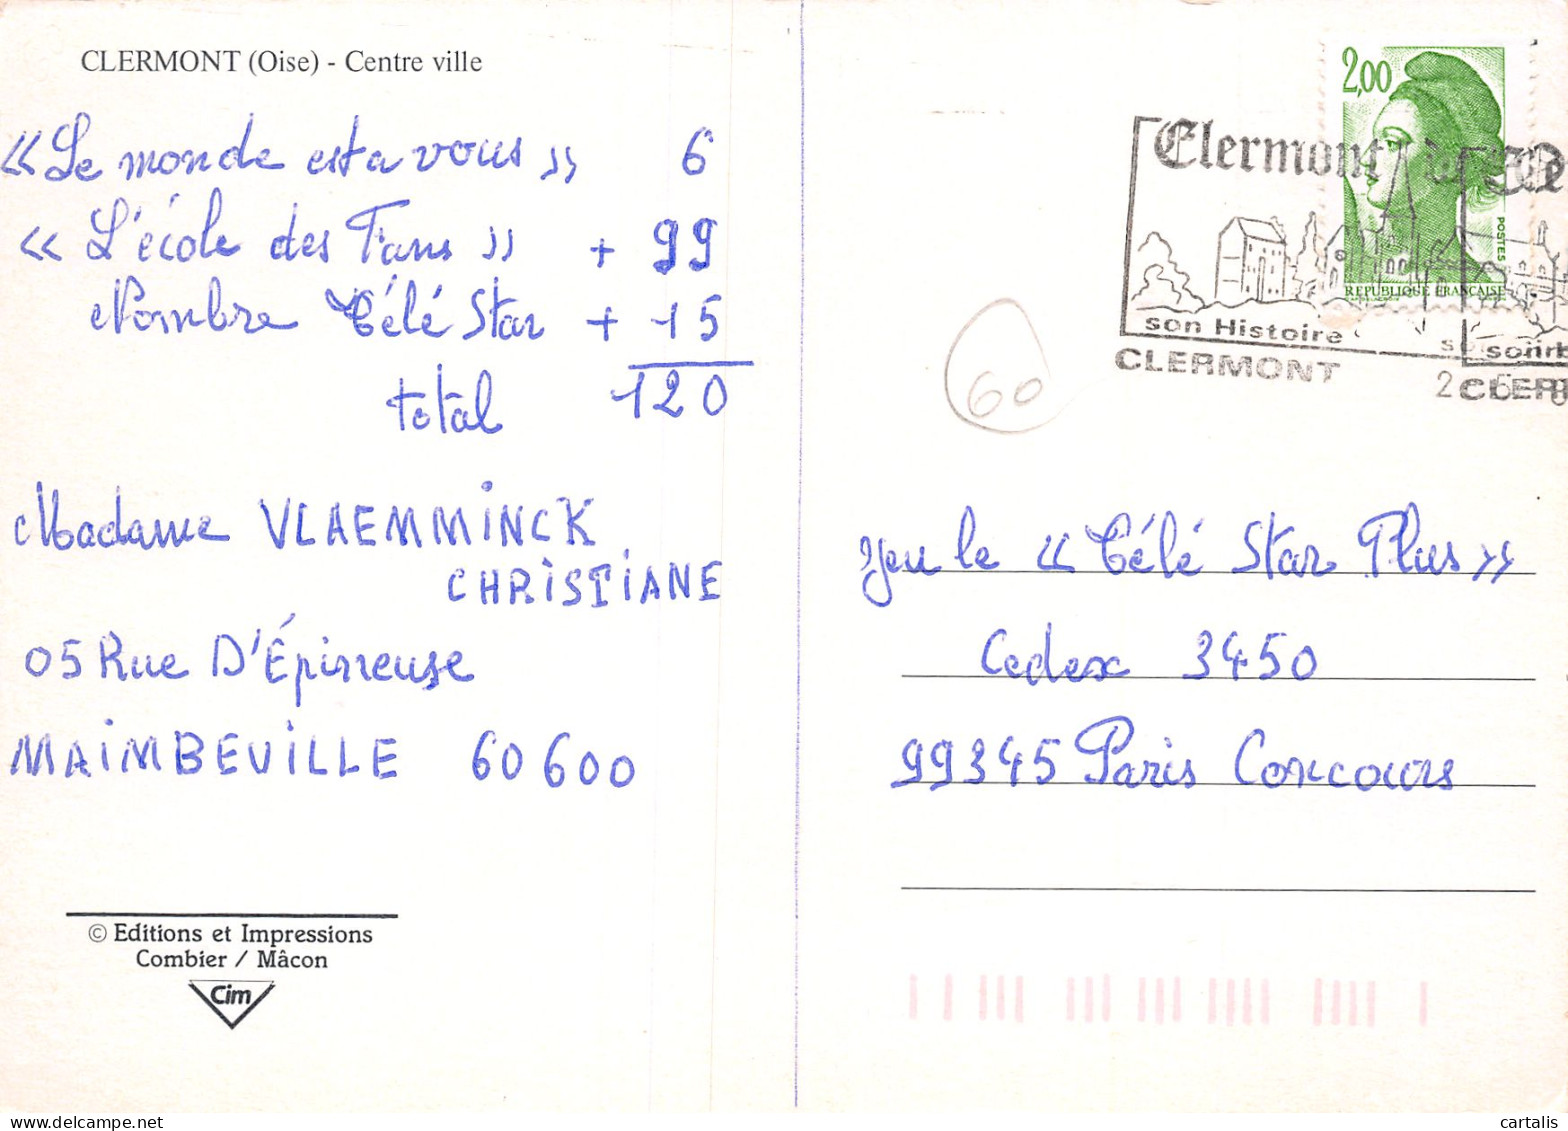 CLERMONT (Oise) - Centre ville
« Le monde est a vous » 6
« L'école des Fans » + 99
Nombre Télé Star + 15
total 120
Madame VLAEMMiNCK
CHRiSTiANE
05 Rue D'Épineuse
MAiMBEViLLE 60600
© Editions et Impressions
Combier / Mâcon
Cim
2,00
POSTES
REPUBLIQUE FRANCAISE
Clermont
son Histoire
CLERMONT
60
Jeu le « Télé Star Plus »
Cedex 3450
99345 Paris Concours
cartalis